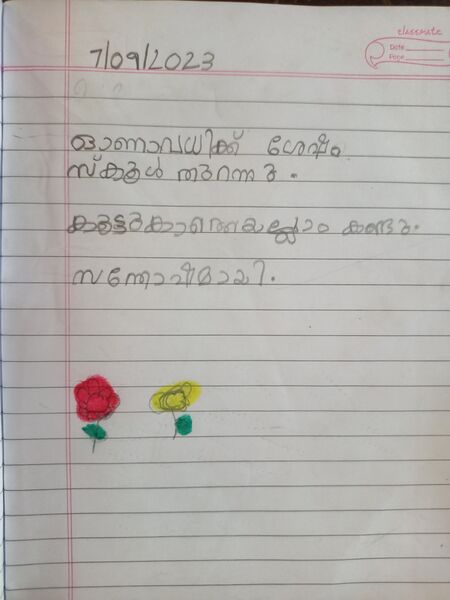 classmate
Date
Page
7/09/2023
ഓണാവധിക്ക് ശേഷം
സ്കൂൾ തുറന്നു.
കൂട്ടുകാരെയെല്ലാം കണ്ടു.
സന്തോഷമായി.